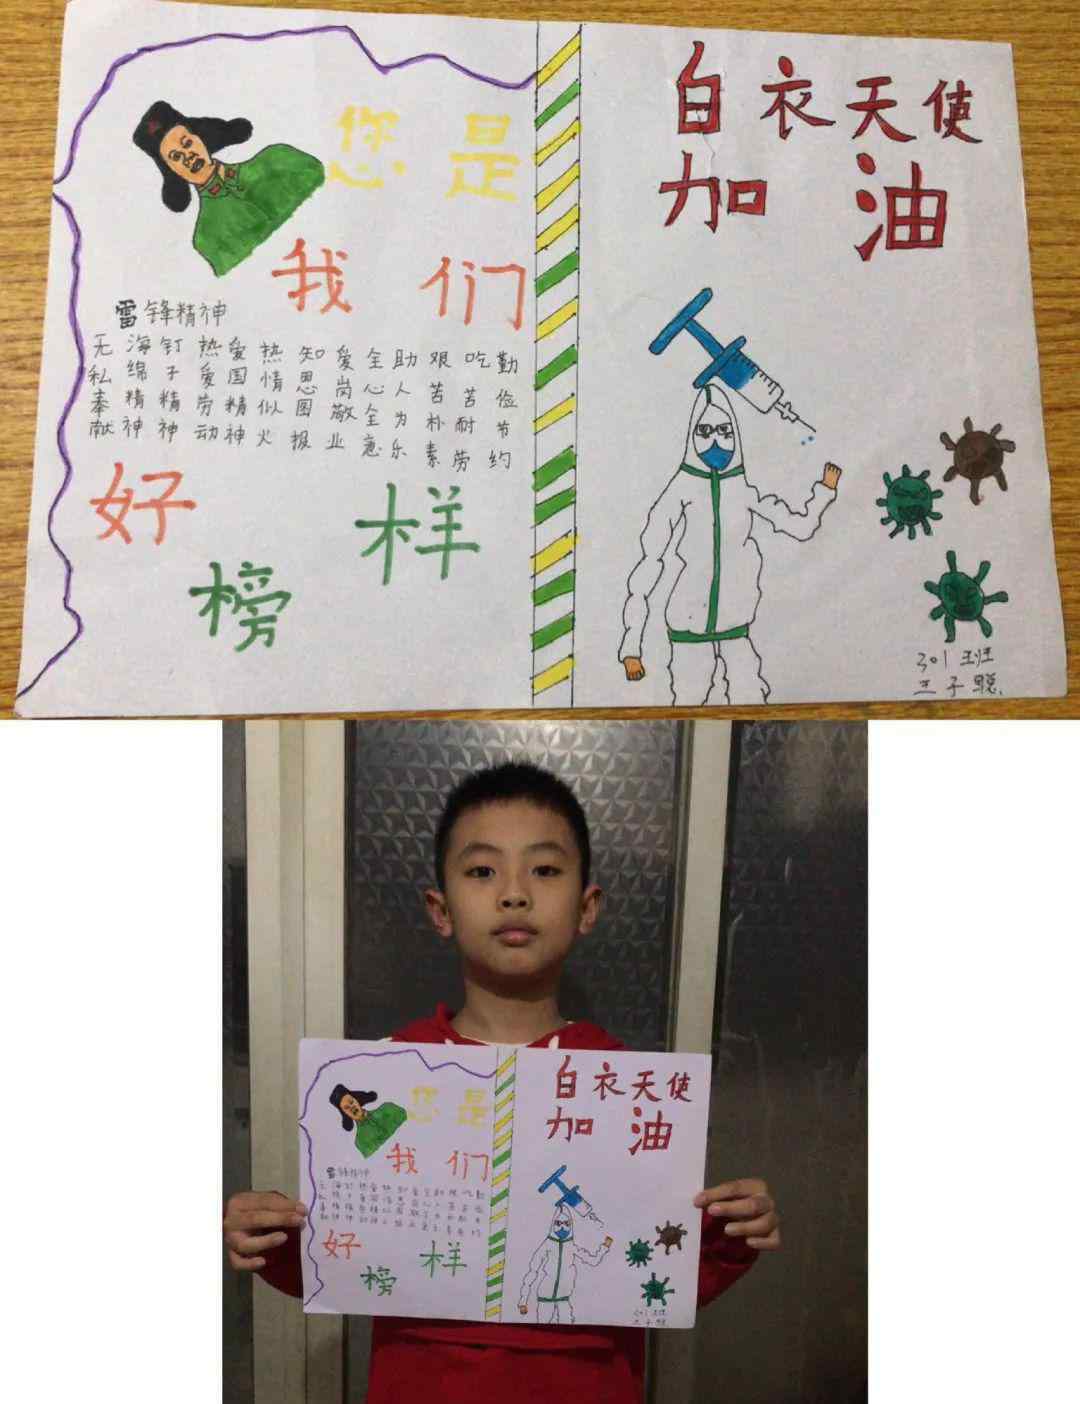 您是
我们
雷锋精神
无私奉献
海绵精神
钉子精神
热爱劳动
爱国精神
热情似火
知思图报
爱岗敬业
全心全意
助人为乐
艰苦朴素
吃苦耐劳
勤俭节约
好
样
榜
白衣天使
加油
301班
子聪
您是
我们
雷锋精神
好
样
榜
白衣天使
加油
301班
子聪